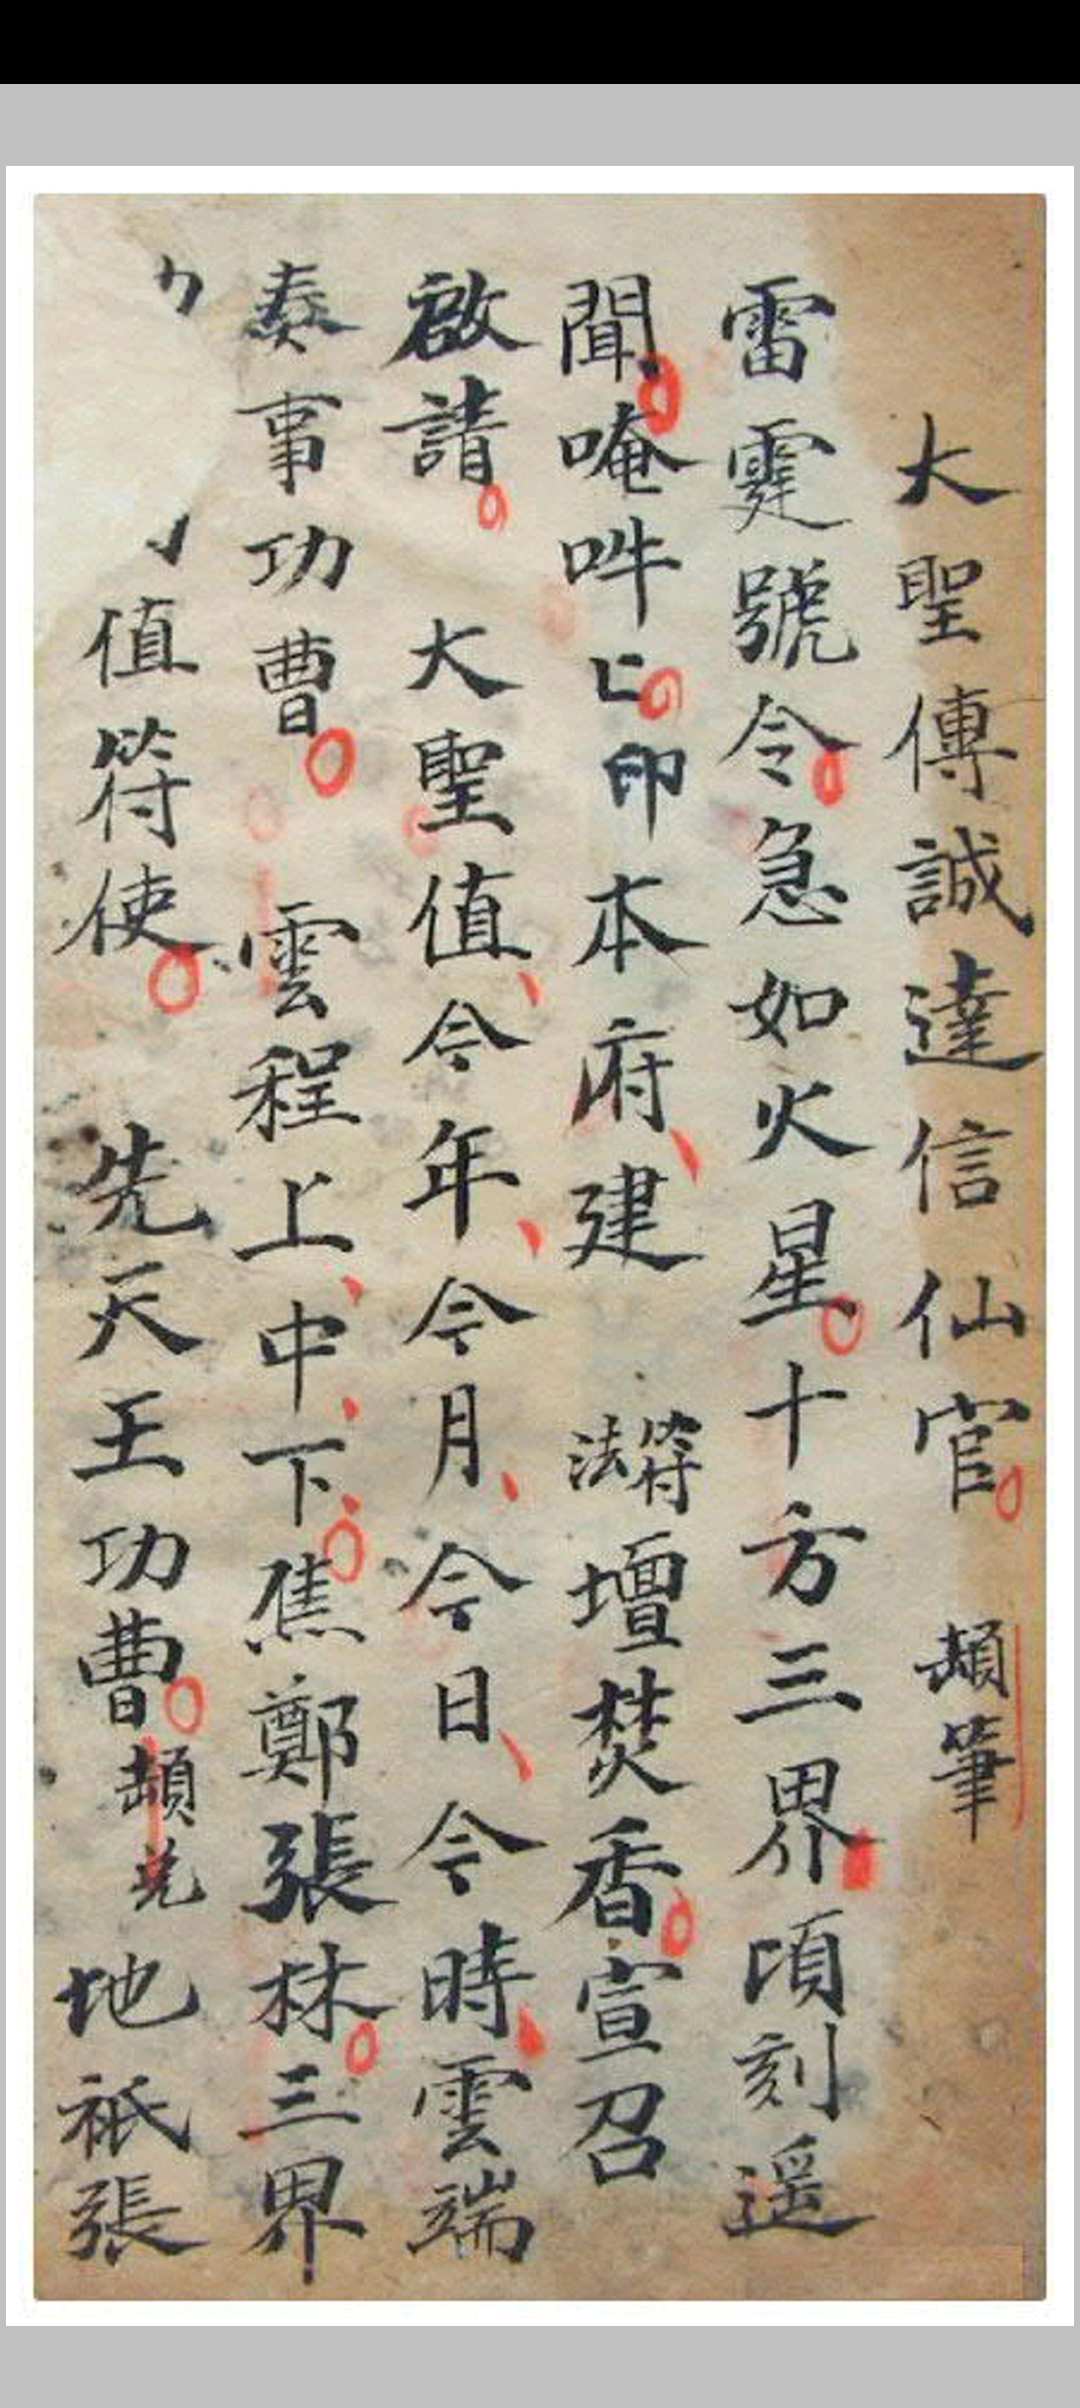 大聖傳誠達信仙官
筆
雷霆號令急如火星十方三界頃刻遥
聞唵吽匕印本府建
符法
壇焚香宣召
啟請大聖值今年今月今日今時雲端
奏事功曹雲程上中下焦鄭張林三界
值符使先天王功曹
地祇張